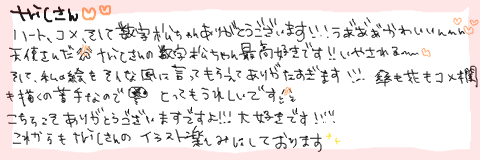 ナドじさん
ハート、コメ、そして数字松ちゃんありがとうございます!!!うああぁかわいいんんん
天使さんだぁ ナドじさんの数字松ちゃん最高好きです!!いやされる〜
そして、私の絵をそんな風に言ってもらってありがたすぎます!!! 傘も花もコメ欄
も描くの苦手なので とってもうれしいです!!
こちらこそありがとうございますですよ!!!大好きです!!!
これからもナドじさんのイラスト楽しみにしております